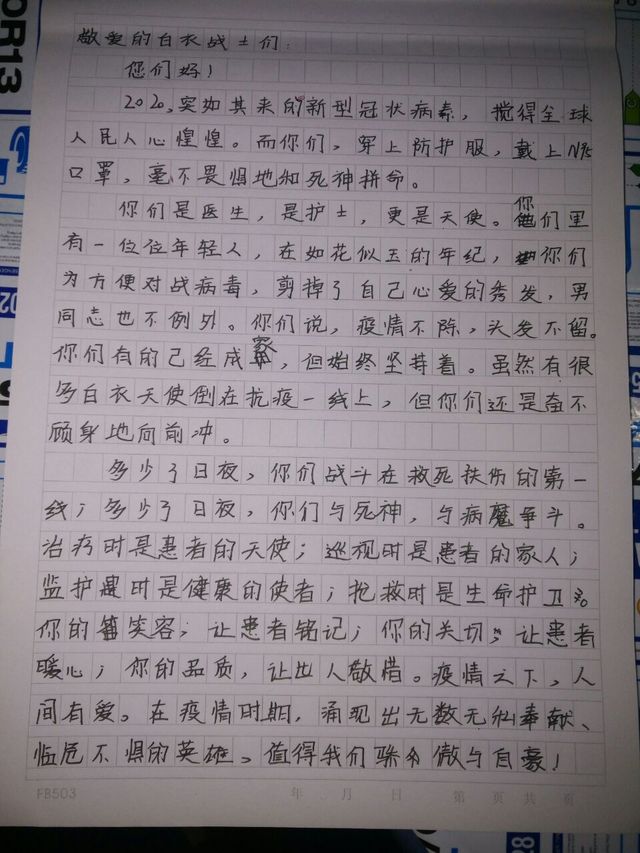 敬爱的白衣战士们:
您们好!
2020,突如其来的新型冠状病毒,搅得全球
人民人心惶惶。而你们,穿上防护服,戴上N95
口罩,毫不畏惧地和死神拼命。
你们是医生,是护士,更是天使。你们里
有一位位年轻人,在如花似玉的年纪,你们
为方便对战病毒,剪掉了自己心爱的秀发,男
同志也不例外。你们说,疫情不除,头发不留。
你们有的已经成家,但始终坚持着。虽然有很
多白衣天使倒在抗疫一线上,但你们还是奋不
顾身地向前冲。
多少了日夜,你们战斗在救死扶伤的第一
线;多少了日夜,你们与死神,与病魔争斗。
治疗时是患者的天使;巡视时是患者的家人;
监护时是健康的使者;抢救时是生命护卫
你的笑容;让患者铭记;你的关切;让患者
暖心;你的品质,让世人敬惜。疫情之下,人
间有爱。在疫情时期,涌现出无数无私奉献、
临危不惧的英雄。值得我们骄傲与自豪!
FB503 年 月 日 第 页 共 页
OR13
02